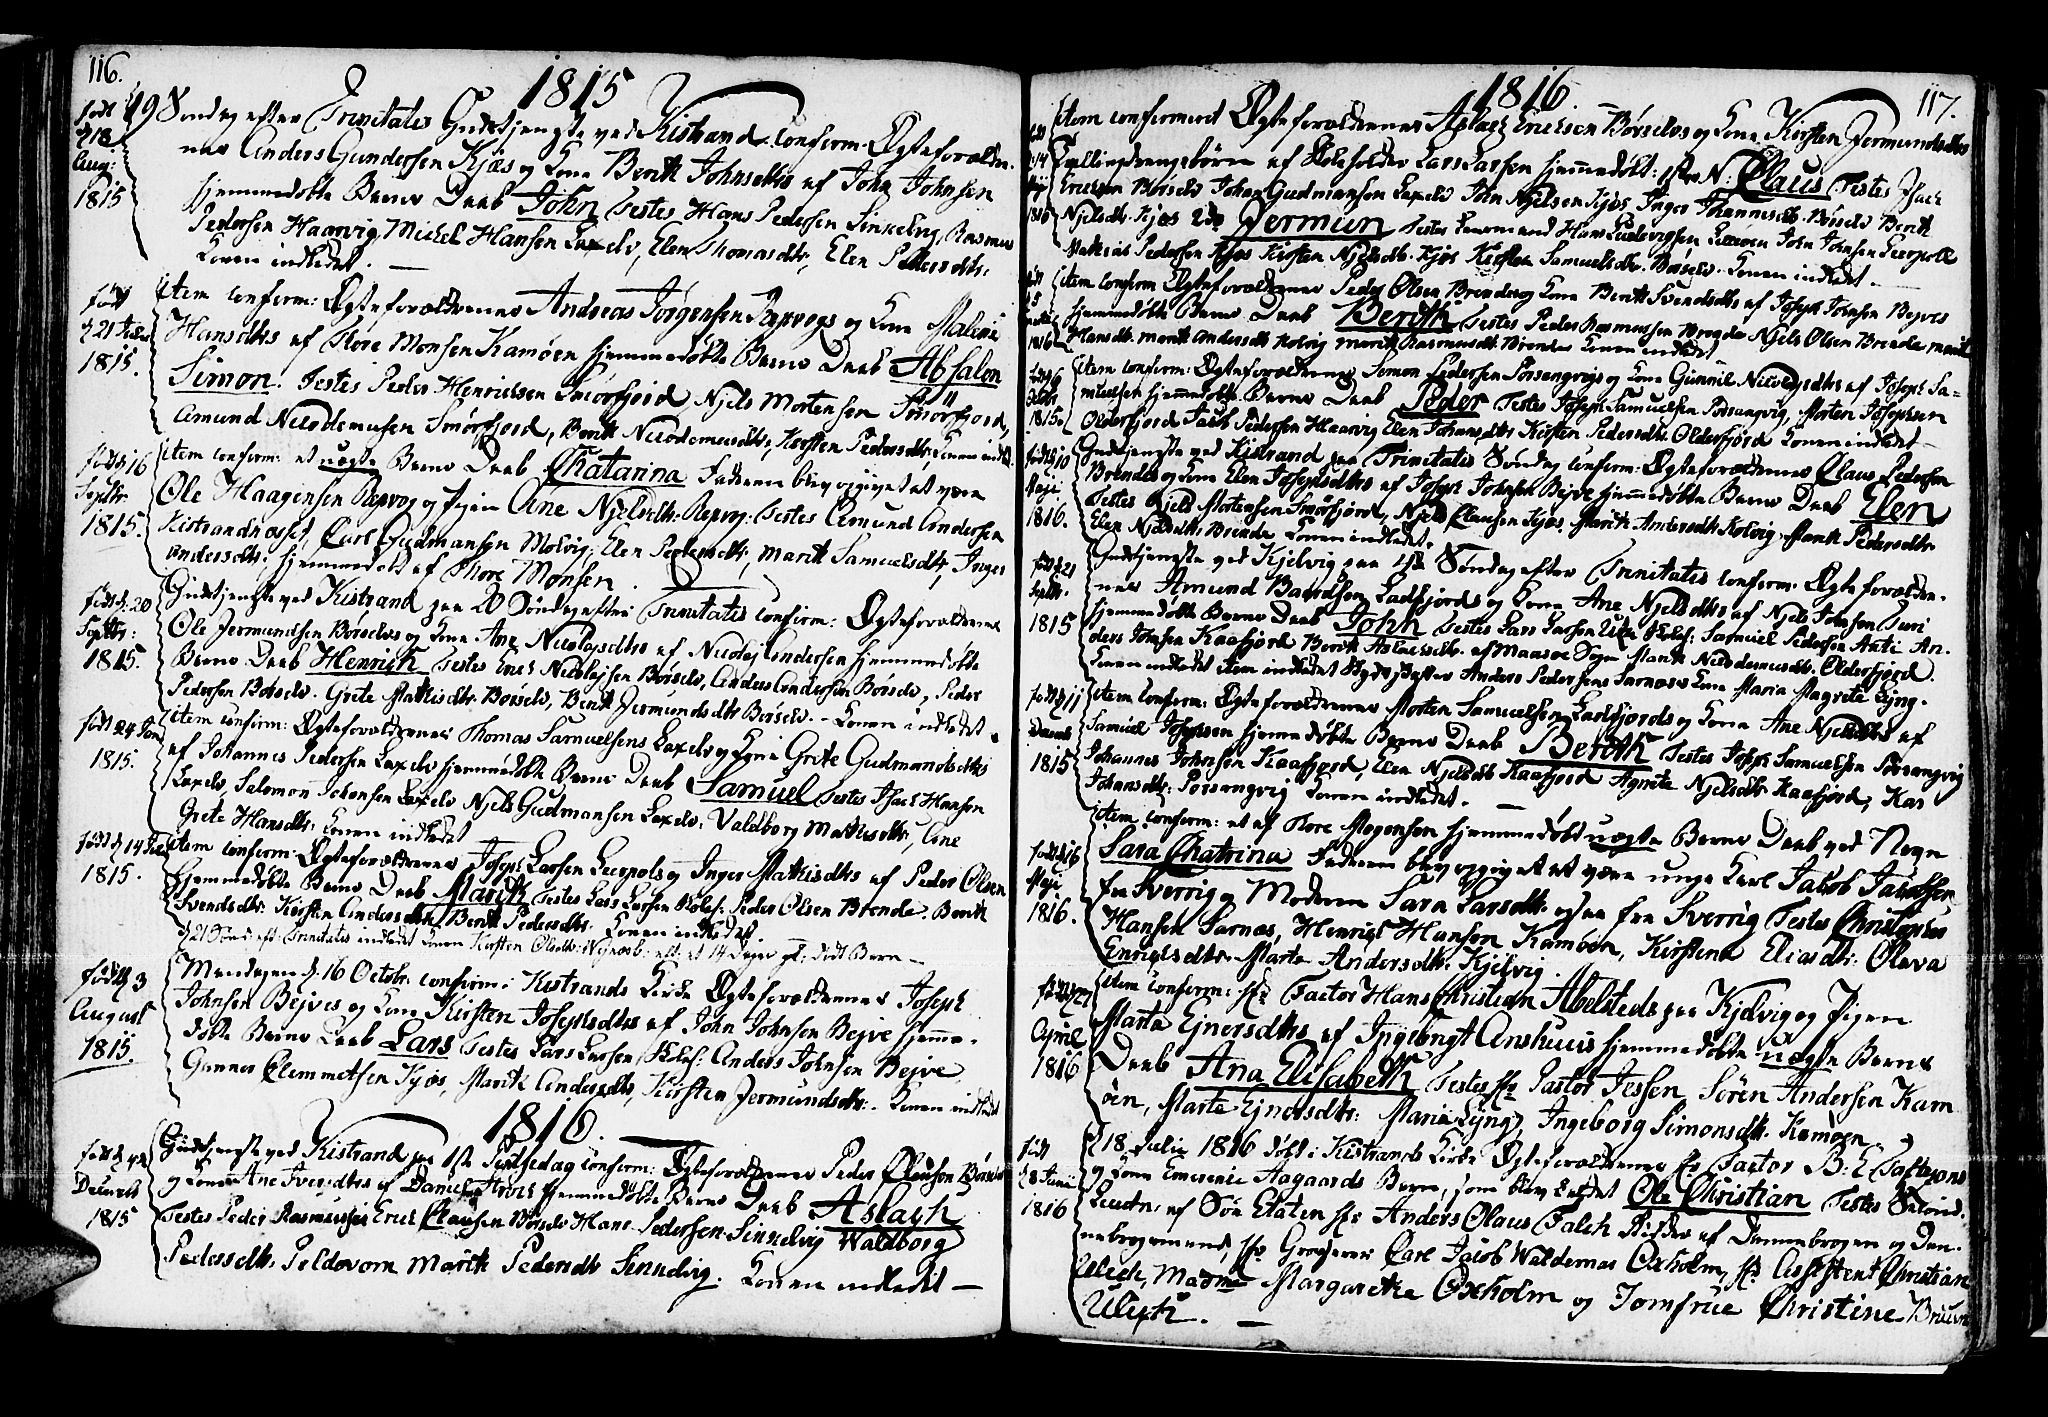 116.
1815
født d 18 Aug: 1815
19 Søndag efter Trinitatis Gudstjeneste ved Kistrand. Confirm. Ægteforældre-
nes Anders Gundersen Kjæs og Kone Berith Johnsdtrs af John Johnsen
hjemmedøbte Barns Daab John Testes Hans Pedersen Sinkelvig, Rasmus
Pedersen Haarvig, Michel Hansen Laxelv, Elen Thomasdtr, Elen Pedersdtr,
Konen indledet. —
født d 21 1815.
item conform: Ægteforældrenes Andreas Jørgensen Repvogs og Kone Maleni
Hansdtrs af Thore Monsen Kamøen hjemmedøbte Barns Daab Absalon
Simon. Testes Peder Henricsen Smørfjord, Njels Mortensen Smörfjord,
Amund Nicodemusen Smørfjord, Berit Nicodemusdtr, Kirsten Pedersdtr, Konen indled.
født d 16 Septbr. 1815.
item conform: et uægte Barns Daab Chatarina Faderen blev opgivet at være
Ole Haagensen Repvog og Pigen Ane Njelsdtr: Repvog: Testes Amund Andersen
Kistrandnæsset, Carl Gudmansen Molvig, Elen Pedersdtr, Marith Samuelsdtr, Inger
Andersdtr. hjemmedøbt af Thore Monsen.
født d. 20 Septbr: 1815.
Gudstjeneste ved Kistrand paa 20 Søndag efter Trinitatis conform: Ægteforældrenes
Ole Jermundsen Børselvs og Kone Ane Nicolajsdtrs af Nicolaj Andersen hjemmedøbte
Barns Daab Henrich Testes Erich Nicolajsen Børselv, Anders Andersen Børselv, Peder
Pedersen Børselv. Grete Mathisdtr Børselv, Berit Jermundsdtr Børselv. - Konen indledet.
født 24 Jan 1815.
item conform: Ægteforældrenes Thomas Samuelsens Laxelv og Kone Grete Gudmandsdtrs
af Johannes Pedersen Laxelv hjemmedøbte Barns Daab Samuel Testes Isach Hansen
Laxelv, Salomon Johansen Laxelv Njels Gudmansen Laxelv. Valdborg Mathisdtr, Ane
Grete Hansdtr. Konen indledet
født d 14 1815.
item conform: Ægteforældrenes Joseph Larsen Leerpols og Inger Mathisdtrs af Peder Olsen
hjemmedøbte Barns Daab Marith Testes Lars Larsen Peder Olsen Brende. Berith
Svendsdtr. Kirsten Andersdtr Berit Pedersdtr. Konen indledet
d 21 Sønd: eft: Trinitatis indledet Konen Kirsten Olsdtr: 14 Dage gl: dødt Barn —
født d 3 August 1815.
Mandagen d. 16 Octobr. conform. i Kistrands Kirke Ægteforældrenes Joseph
Johnsen Bejves og Kone Kirsten Josephsdtrs af John Johnsen Bejve hjemme-
døbte Barns Daab Lars Testes Lars Larsen, Anders Johnsen Bejve
Gunner Clemmetsen Kjæs, Marith Andersdtr, Kirsten Jermundsdtr. - Konen indledet
1816.
født d Decemb 1815
Gudstjeneste ved Kistrand paa 1ste Festedag conform: Ægteforældrenes Peder Clausen Børselv
og Kone Ane Svendsdtrs af Daniel hjemmedøbte Barns Daab Aslach
Testes Peder Rasmussen Erich Clausen Børselv Hans Pedersen Sinnelvig Waldborg
Pedersdtr. Peldovom Marith Pedersdtr Sennelvig. Konen indledet —
117.
1816.
født d. 14 Maj 1816
item conformeret Ægteforældrenes Aslach Erichsen Børselvs og Kone Kirsten Jermundsdtrs
Tvillingdrengebørn af Skoleholder Lars Larsen hjemmedøbt: 1ste N: Claus Testes Isach
Ericksen Børselv Johan Gudmansen Laxelv John Njelsen Kjæs Inger Johannesdtr. Børselv Berith
Njelsdtr. Kjæs 2de Jermun Testes Hans Ludvigsen John Johnsen Leerpoll
Mathias Pedersen Kjæs Kirsten Njelsdtr. Kjæs Kirsten Samuelsdtr. Børselv. Konen indledt —
født d 5 1816
item conform Ægteforældrenes Peder Olsen Brendes og Kone Berith Svendsdtrs af Joseph Johnsen Bejves
hjemmedøbte Barns Daab Berith Testes Peder Rasmussen Brende Njels Olsen Brende Marith
Hansdtr. Marith Andersdtr Kolvig Marith Rasmusdtr Brendes Konen indledet
født d 6 Octbr 1815.
item conform: Ægteforældrenes Simon Pedersen Porsangvigs og Kone Gunnil Nicolajsdtrs af Joseph Sa-
muelsen hjemmedøbte Barns Daab Peder Testes Joseph Samuelsen Porsangvig, Morten Josephsen
Olderfjord Jacob Pedersen Haarvig Elen Johansdtr Kirsten Pedersdtr. Olderfjord Konen indledt —
født d 10 Maji 1816.
Gudstjeneste ved Kistrand paa Trinitatis Søndag conform: Ægteforældrenes Claus Pedersen
Brendes og Kone Elen Josephsdtrs af Joseph Johnsen Bejve hjemmedøbte Barns Daab Elen
Testes Njels Mortensen Smørfjord, Njels Clausen Kjæs, Marith Andersdtr Kolvig, Marith Pedersdtr
Elen Njelsdtr Brende Konen indledet.
født d 21 Septbr. 1815
Gudstjeneste ved Kjelvig paa 1ste Søndag efter Trinitatis conform. Ægteforældre-
nes Amund Baardsen Ladefjords og Kone Ane Njelsdtrs af Njels Johnsen
hjemmedøbte Barns Daab John Testes Lars Larsen Samuel Pedersen An-
ders Johnsen Kaafjord Berith Aslacsdtr. af Maasøe Sogn Marith Nicodemusdtr. Olderfjord.
Konen indledet item indledet Anders Pedersens Sarnæs Kone Maria Magrete Lyng.
født d 11 Decemb 1815
item conform: Ægteforældrenes Morten Samuelsen Ladefjords og Kone Ane Njelsdtrs af
Samuel Josepsen hjemmedøbte Barns Daab Berith Testes Joseph Samuelsen Porsangvig
Johannes Johnsen Kaafjord, Elen Njelsdtr Kaafjord Agnete Njelsdtr. Kaafjord, Kar
Johansdtr: Porsangvig Konen indledet. —
født d 16 Maji 1816.
item conform: et af Thore Mogensen hjemmedøbt uægte Barns Daab ved Navn
Sara Chatrina Faderen blev opgivet at være unge Karl Jacob Jacobsen
fra Sverrig og Moderen Sara Larsdtr. ogsaa fra Sverrig Testes Christopher
Hansen Sarnæs, Henrich Hansen Kamøen, Kirstena Eliasdtr: Olava
Enrichsdtr. Marta Andersdtr. Kjelvig.
født d 27 April 1816
item conform: Hr Factor Hans Christian Abelsteds paa Kjelvig og Pigen
Marta Ejnersdtrs af Ingebrigt Anshuus hjemmedøbte uægte Barns
Daab Ana Elisabeth Testes Hr Pastor Jessen, Sören Andersen Kam
öen, Marta Ejnersdtr: Maria Lyng, Ingeborg Simonsdtr. Kamøen.
født d 8 Juni 1816
d 18 Julii 1816 døbt i Kistrands Kirke Ægteforældrenes Hr Factor B: E
og Kone Emerenie Aagaards Barn, som blev kaldet Ole Christian Testes
Leutn: af Søe Etaten Hr Anders Olaus Falch Ridder af Dannebrogen og Dan-
nebrogsmand, Hr Grosserer Carl Jacob Waldemar Oxholm, Hr Assistent Christian
Ulich, Madme Margarethe Oxholm og Jomfrue Christine Bruun
Ulich. —